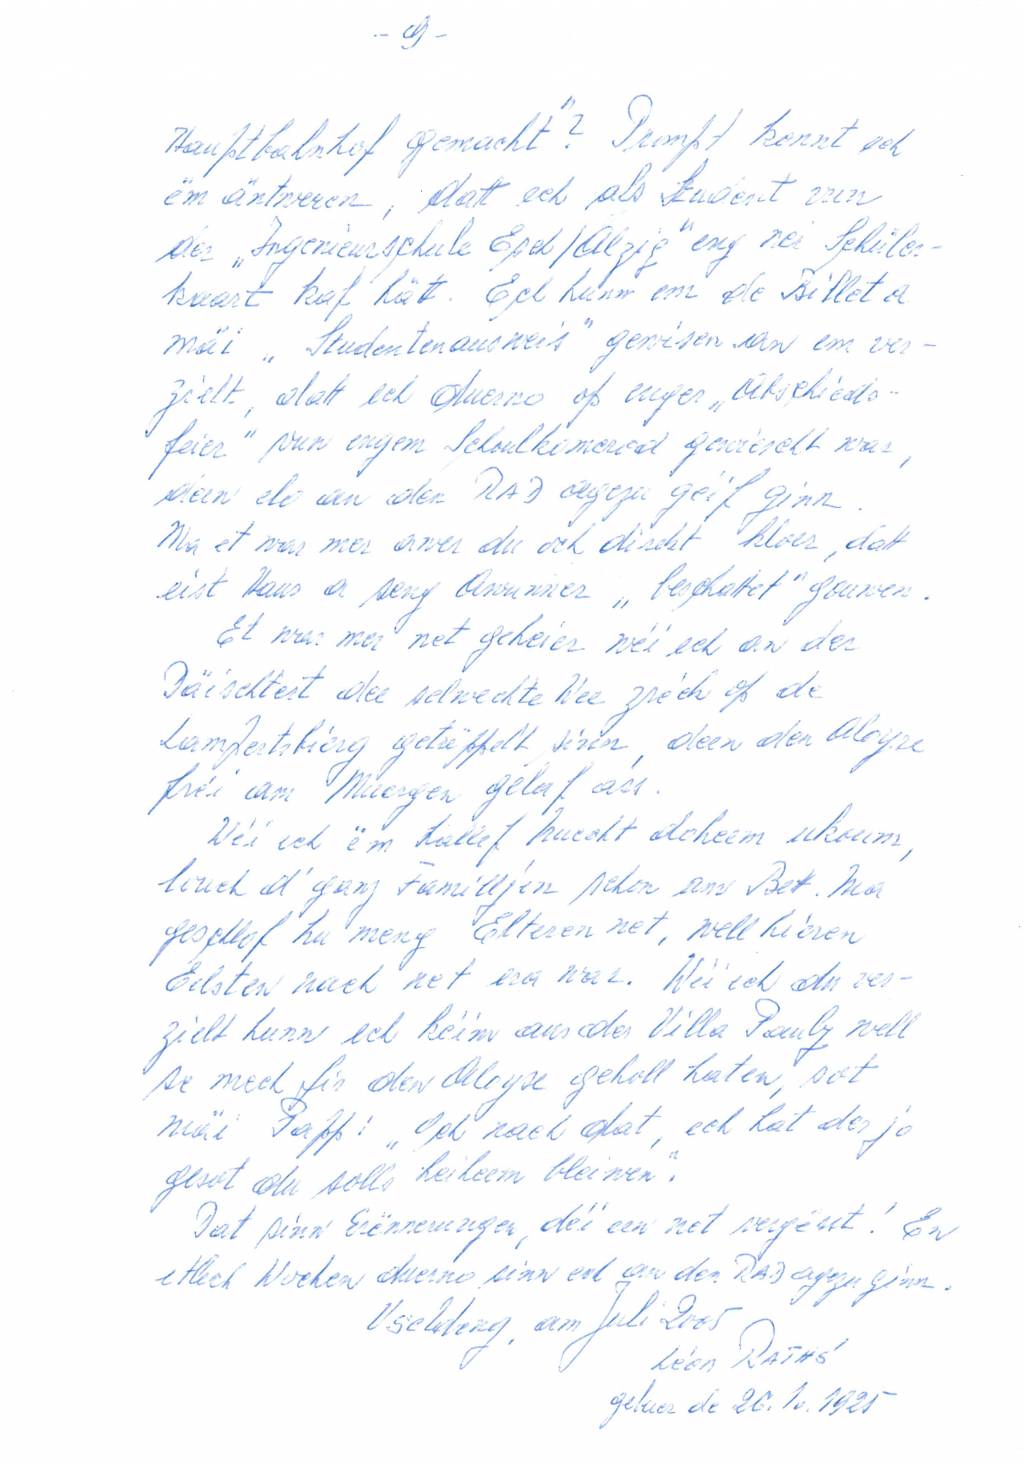 - 9 -
Hauptbahnhof gemacht"? Prompt konnt ech
ëm äntweren, datt ech als Student vun
der „Ingenieurschule Esch/Alzig" eng nei Schüler-
kaart kaf hätt. Ech hunn em de Billet a
mäi „Studentenausweis" gewisen an em ver-
zielt, datt ech duerno op enger „Abschieds-
feier" vun engem Schoulkomerod gewiescht war,
deen elo an den RAD agezu géif ginn.
Ma et war mer awer du och direkt kloer, datt
eist Haus a seng Awunner „beschattet" gouwen.
Et war mer net geheier wéi ech an der
Däischtert dee selwechte Wee zréck op de
Lampertsbierg getrëppelt sinn, deen den Aloyse
fréi am Muergen gelaf ass.
Wéi ech ëm hallef Nuecht doheem ukoum,
louch d'ganz Familljen schon am Bett. Ma
geschlof hu meng Elteren net, well hieren
Eelsten nach net era war. Wéi ech du ver-
zielt hunn ech kéim aus der Villa Pauly well
se mech fir den Aloyse geholl haten, sot
mäi Papp: „Och nach dat, ech hat der jo
gesot du solls heiheem bleiwen".
Dat sinn Erënnerungen, déi een net vergësst! En
etlech Wochen duerno sinn ech an den RAD agezu ginn.
am Juli 2005
Léon RATHS
gebuer de 26. 10. 1925